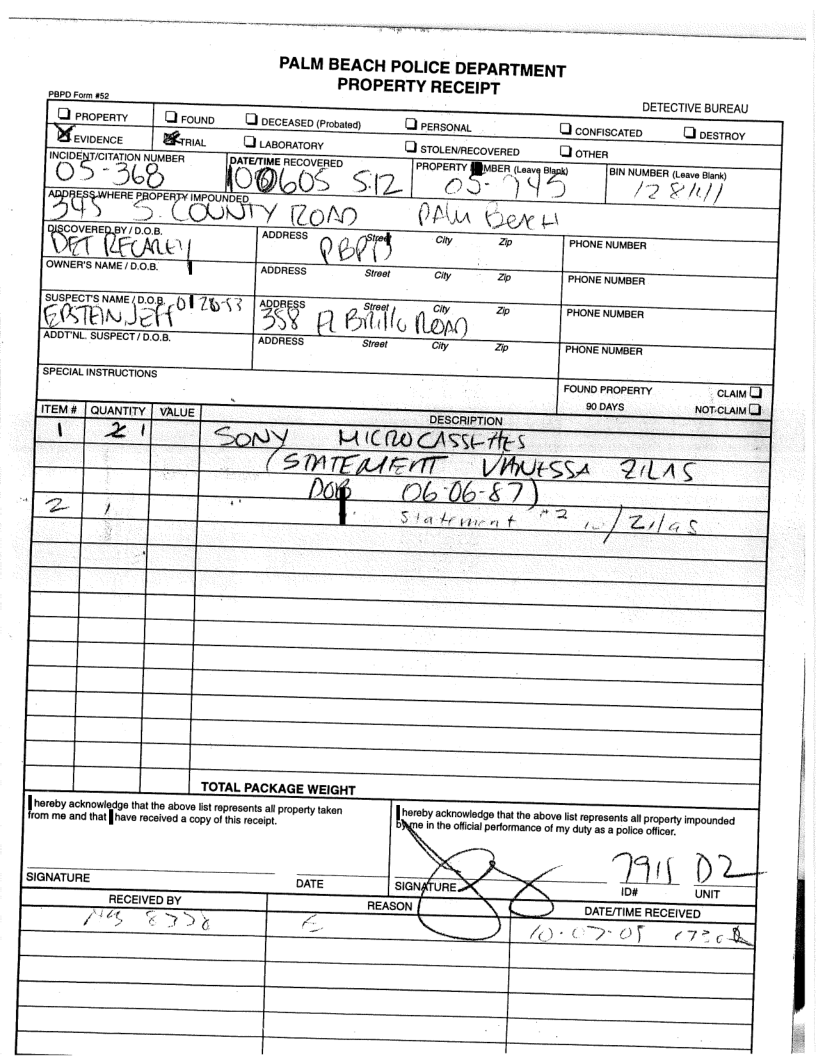 PALM BEACH POLICE DEPARTMENT
PROPERTY RECEIPT
PBPD Form #52
DETECTIVE BUREAU
PROPERTY FOUND DECEASED (Probated) PERSONAL CONFISCATED DESTROY
EVIDENCE TRIAL LABORATORY STOLEN/RECOVERED OTHER
INCIDENT/CITATION NUMBER DATE/TIME RECOVERED PROPERTY NUMBER (Leave Blank) BIN NUMBER (Leave Blank)
05-368 100605 S12 05-745
ADDRESS WHERE PROPERTY IMPOUNDED
345 S. COUNTY ROAD PALM BEACH
DISCOVERED BY / D.O.B. ADDRESS Street City Zip PHONE NUMBER
DET RECAREY PBPD
OWNER'S NAME / D.O.B. ADDRESS Street City Zip PHONE NUMBER
SUSPECT'S NAME / D.O.B. ADDRESS Street City Zip PHONE NUMBER
EPSTEIN, JEFF 358 El Brillo ROAD
ADDT'NL. SUSPECT / D.O.B. ADDRESS Street City Zip PHONE NUMBER
SPECIAL INSTRUCTIONS
FOUND PROPERTY CLAIM
90 DAYS NOT CLAIM
ITEM # QUANTITY VALUE DESCRIPTION
1 1 SONY MICROCASSETTES
(STATEMENT VANESSA ZILAS
DOB 06-06-87)
2 1 " " Statement #2 w/ Zilas
TOTAL PACKAGE WEIGHT
I hereby acknowledge that the above list represents all property taken
from me and that I have received a copy of this receipt.
I hereby acknowledge that the above list represents all property impounded
by me in the official performance of my duty as a police officer.
7915 D2
SIGNATURE DATE SIGNATURE ID# UNIT
RECEIVED BY REASON DATE/TIME RECEIVED
8338 E 10-07-05